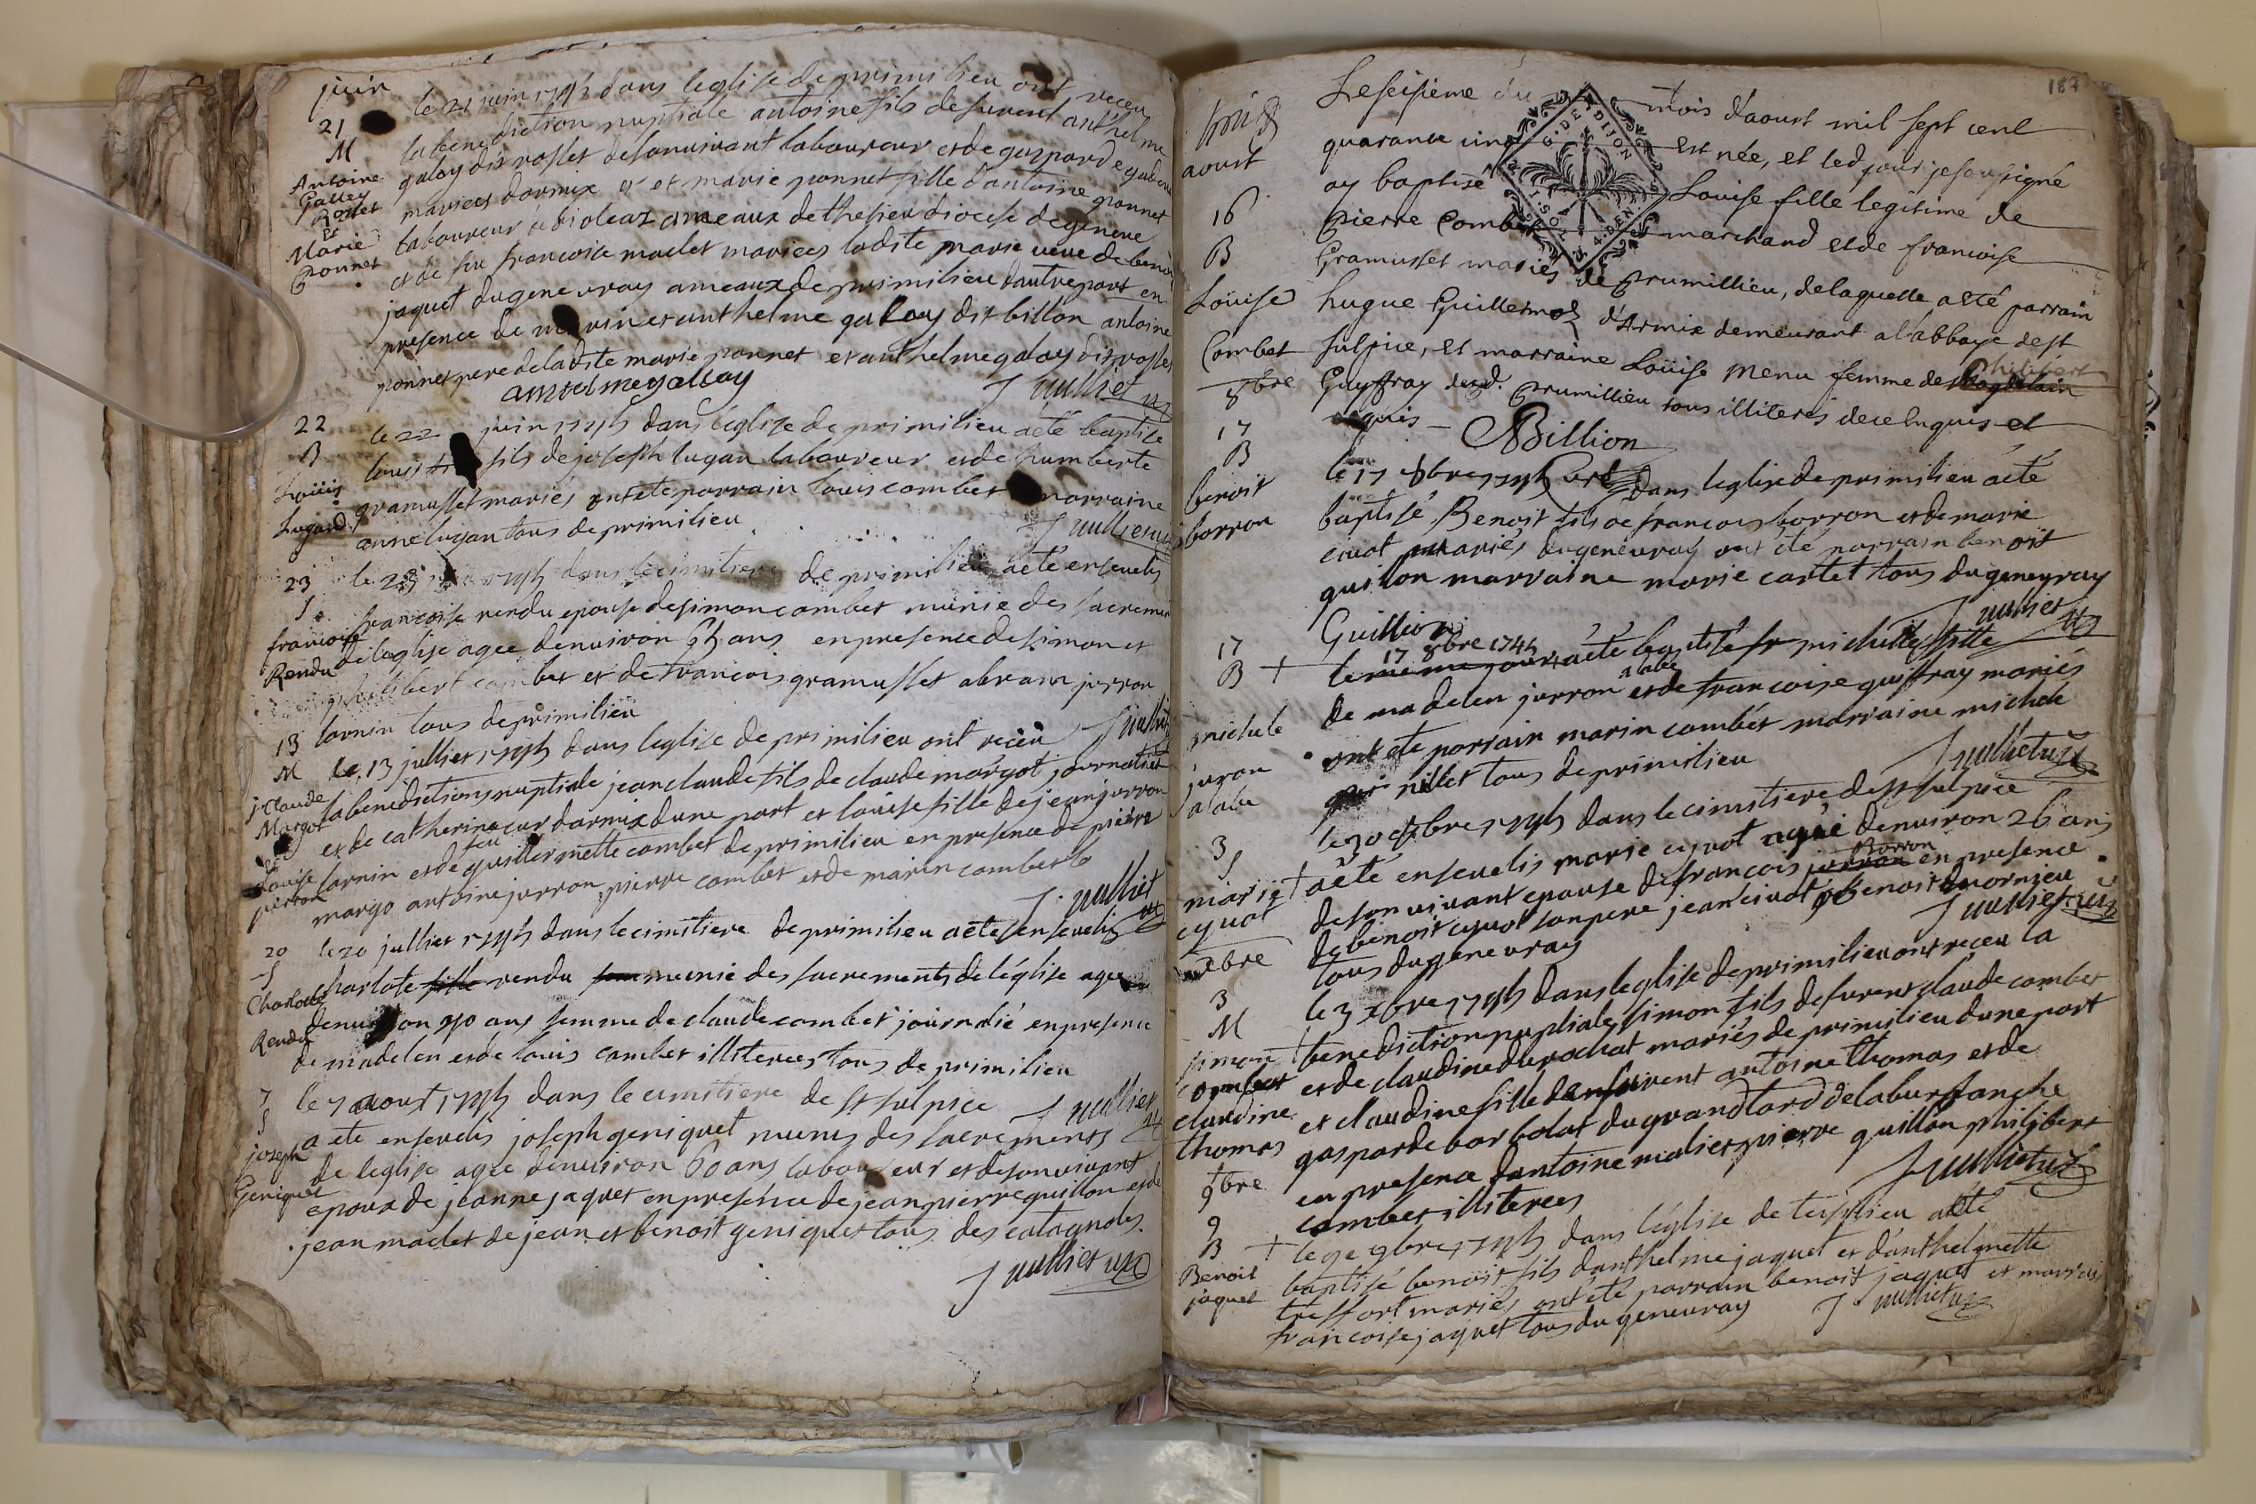 juin
le 21 juin 1745 dans leglise de primilieu ont receu
21
M
la benediction nuptiale antoine fils de furent anthelme
Antoine
Galley
Roslet
et
Marie
Ponnet
galay dit roslet de son vivant laboureur et de gaspard
maries darmix et et marie ponnet fille dantoine ponnet
laboureur ameaux de thesieu diocese de geneve
et de feu francoise maclet maries ladite marie veuve de benoit
jaquet du genevray ameaux de primilieu dautre part en
presence de et anthelme galay dit billon antoine
ponnet pere de ladite marie ponnet et anthelme galay dit roslet
anthelme gallay
J Jullliet
22
B
Louis
Lugand
le 22 juin 1745 dans leglise de primilieu aeté baptise
louis fils de joseph lugan laboureur et de humberte
gramusset mariés ont ete parrain louis combet marraine
anne lugan tous de primilieu
J Julliet
23
S
francoise
Rendu
le 23 1745 dans le cimitiere de primilieu aeté ensevelis
francoise rendu epouse de simon combet munie des sacremens
de leglise agee denviron ans en presence de simon et
philibert combet et de francois gramusset abram jurron
larnin tous de primilieu
J Julliet
13
M
j claude
Margot
et
Louise
perron
le 13 jullier 1745 dans leglise de primilieu ont receu
la benediction nuptiale jean claude fils de claude margot journalier
et de catherine darmix dune part et louise fille de jean jurron
larnin et de feu guillermette combet de primilieu en presence de pierre
margo antoine jurron pierre combet et de marin combet
J. Julliet
20
S
Charlotte
Rendu
le 20 jullier 1745 dans le cimitiere de primilieu aeté ensevelis
charlote fille rendu munie des sacrements de léglise agee
denviron ans femme de claude combet journalié en presence
de madelen et de louis combet illiterees tous de primilieu
7
S
joseph
Geniquet
le 7 aoust 1745 dans le cimitiere de st sulpice
J Julliet
a ete ensevelis joseph geniquet munis des sacrements
de leglise agee denviron 60 ans laboureur et de son vivant
epoux de jeanne jaquet en presence de jean pierre guillon et de
jean maclet de jean et benoit geniquet tous des catagnoles.
J Julliet
187
G. DE DIJON
4. DEN.
aoust
16
B
Loüise
Combet
Le seisieme du mois d'aoust mil sept cent
quarante cinq est née, et led. jour je soussigné
ay baptisé Louise fille legitime de
Pierre Combet marchand et de francoise
Gramusset mariés de Prumillieu, delaquelle a eté parrain
hugue Guillermoz d'Armix demeurant a l'abbaye de st
sulpice, et marraine Loüise Menu femme de Magdelain Philibert
Guyffray dud. Prumillieu tous illiterés de ce enquis et
requis — Billion
8bre
17
B
benoit
borron
le 17 8bre 1745 dans leglise de primilieu aeté
baptisé Benoit fils de francois borron et de marie
civot mariés du genevray ont été parrain benoit
guillon marraine marie cartet tous du genevray
Guillion
J Julliet
17
B +
michele
juron
alabe
17 8bre 1745
le meme jour aeté baptisé michelle fille
de madelen jurron alabe et de francoise guiffray mariés
ont ete parrain marin combet marraine michele
nillet tous de primilieu
J Julliet
3
S
marie
cyvot
le 30 8bre 1745 dans le cimitiere de st sulpice
aeté ensevelis marie cyvot agée denviron 26 ans
de son vivant epouse de francois jurron Borron en presence
de benoit cyvot son pere jean civot et Benoit de vornieu
tous du genevray
J Julliet
xbre
3
M
simon
combet
claudine
thomas
le 3 xbre 1745 dans leglise de primilieu ont receu la
benediction nuptiale simon fils de furent claude combet
et de claudine durochat mariés de primilieu dune part
et claudine fille de furent antoine thomas et de
gasparde barbolat du grand tard de la burbanche
en presence dantoine molier pierre guillon philibert
combet illiterees
J Julliet
9bre
9
B +
Benoit
jaquet
le 9e 9bre 1745 dans léglise de aeté
baptisé benoit fils danthelme jaquet et danthelmette
tressort mariés ont été parrain benoit jaquet et marraine
francoise jaquet tous du genevray
J. Julliet